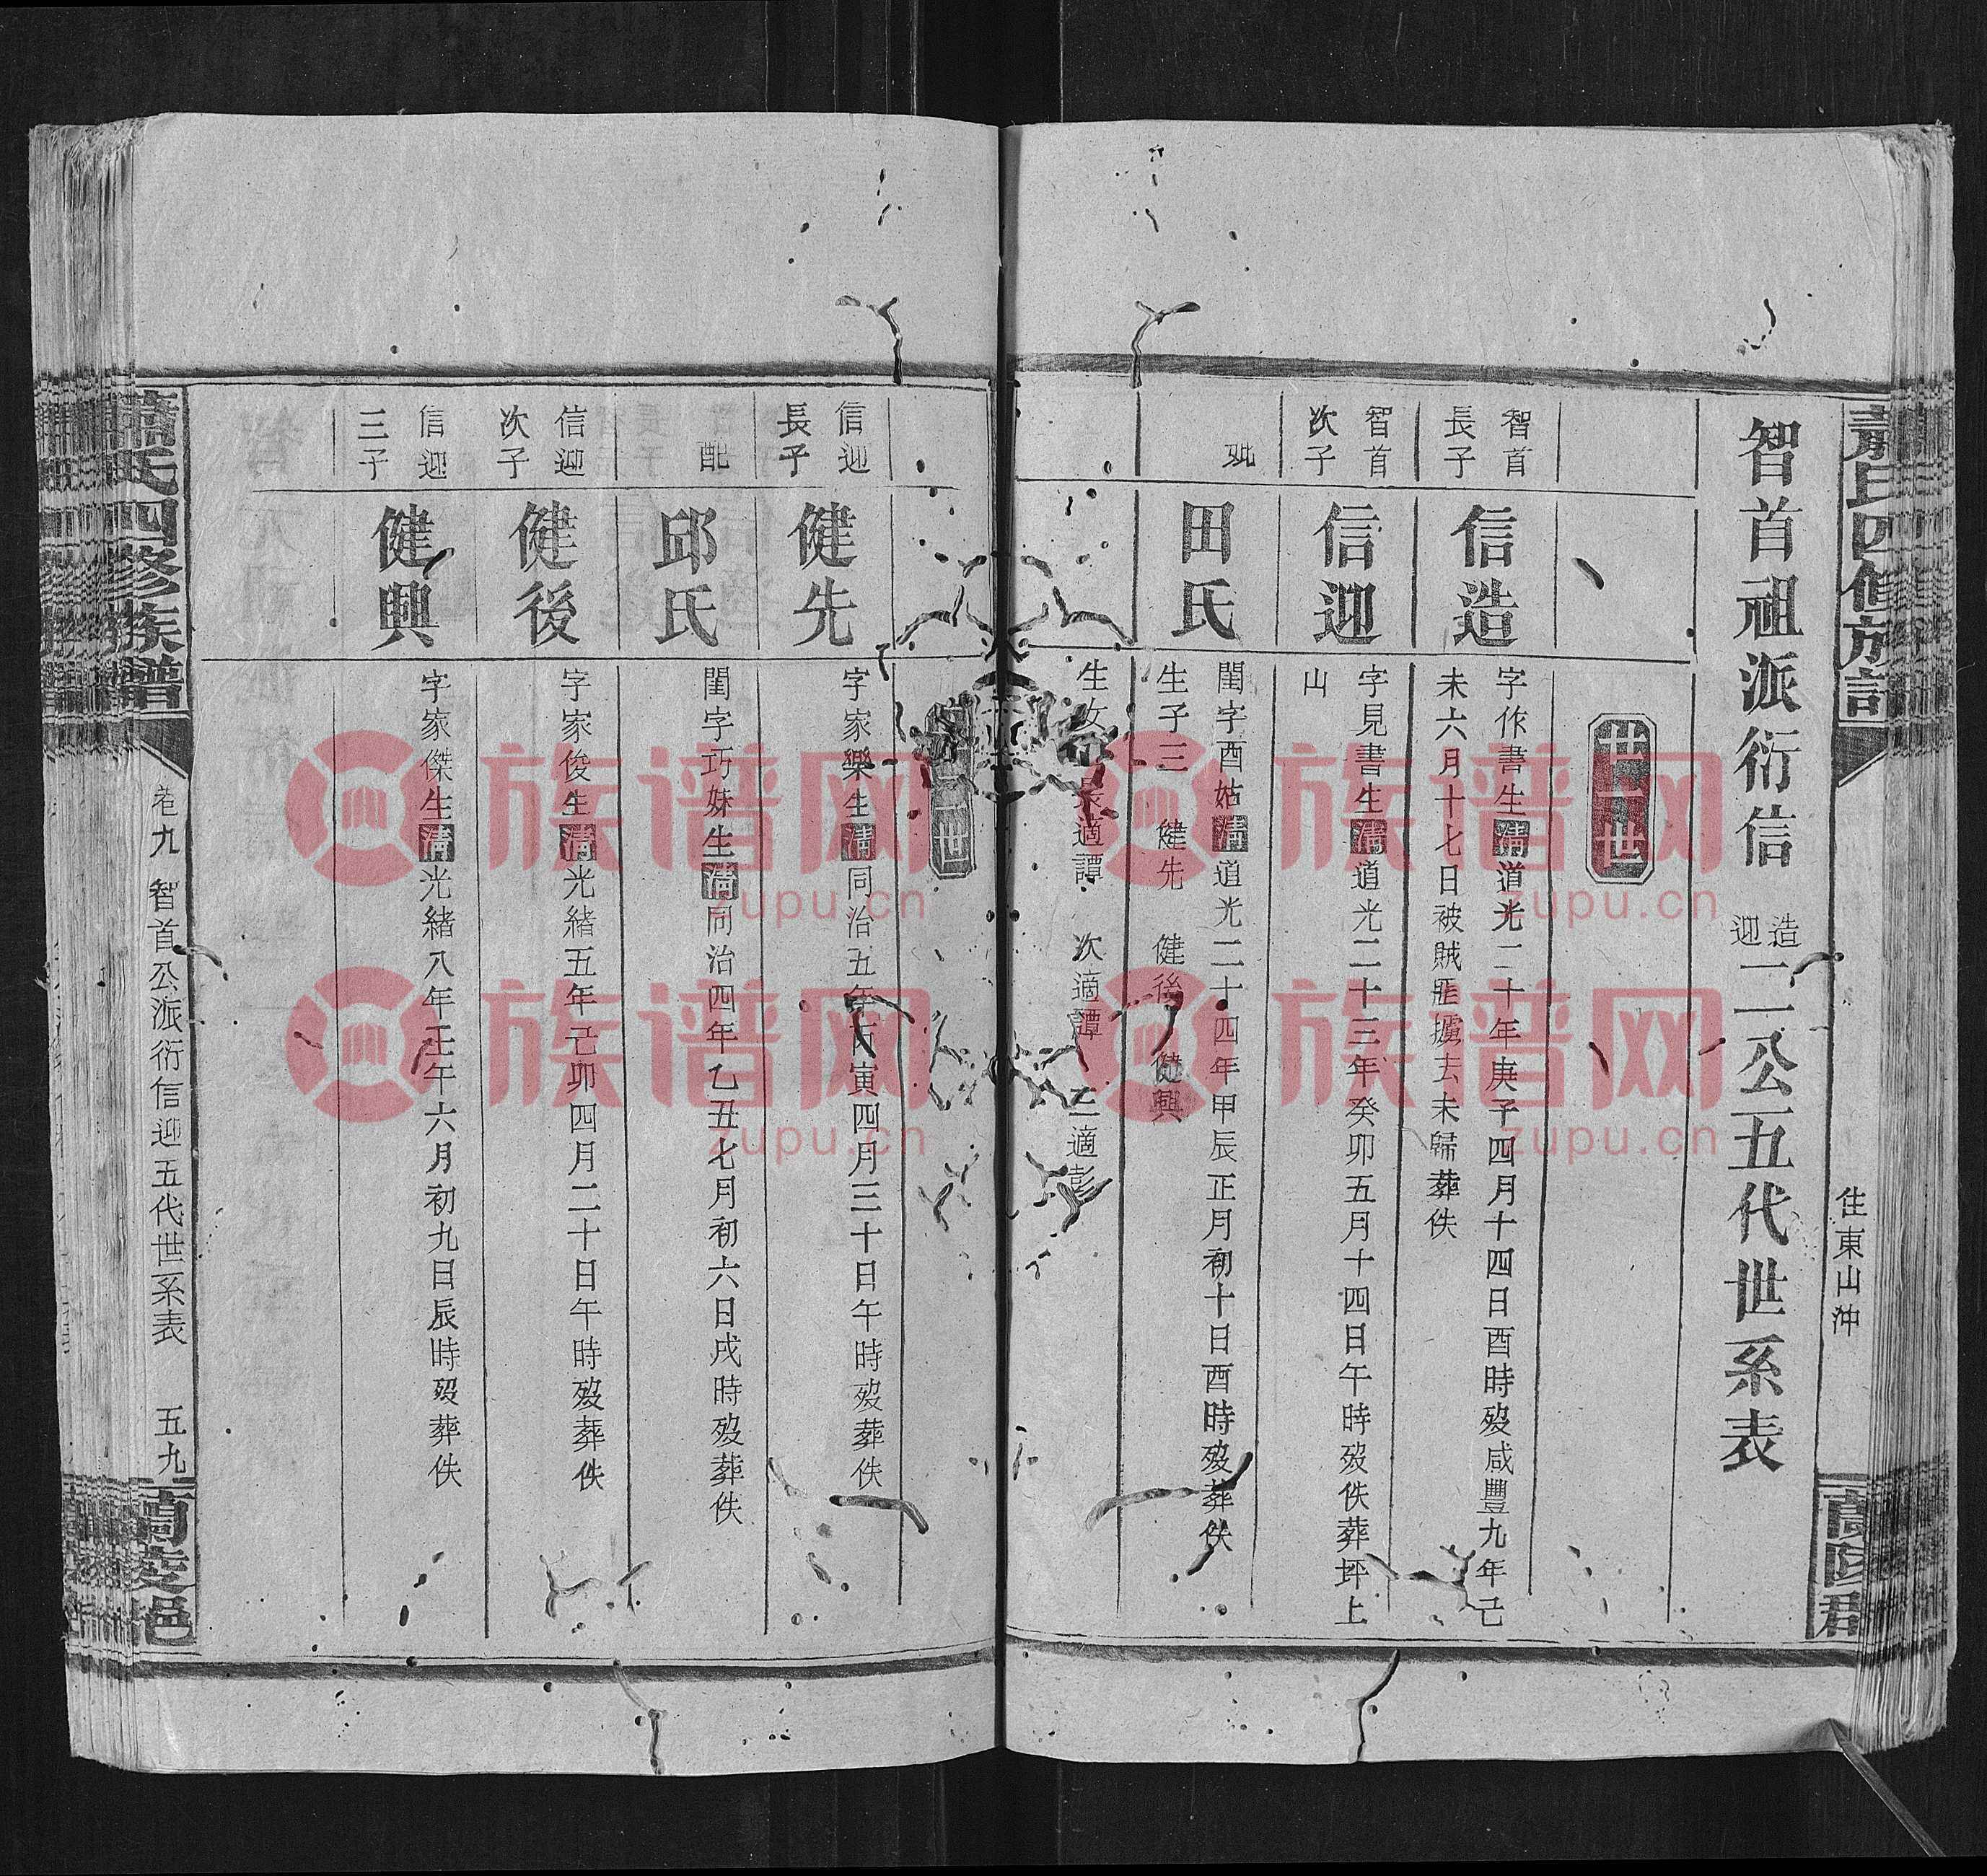 住東山沖
智首祖派衍信造迎二公五代世系表
智首長子
信造
字作書生清道光二十年庚子四月十四日酉時歿咸豐九年己
未六月十七日被賊匪擄去未歸葬佚
智首次子
信迎
字見書生清道光二十三年癸卯五月十四日午時歿佚葬坪上
山
妣
田氏
閨字酉姑清道光二十四年甲辰正月初十日酉時歿葬佚
生子三 健先 健後 健興
生女 長適譚 次適譚 三適彭
信迎長子
健先
字家樂生清同治五年丙寅四月三十日午時歿葬佚
配
邱氏
閨字巧妹生清同治四年乙丑七月初六日戌時歿葬佚
信迎次子
健後
字家俊生清光緒五年己卯四月二十日午時歿葬佚
信迎三子
健興
字家傑生清光緒八年壬午六月初九日辰時歿葬佚
蕭氏四修族譜
卷九 智首公派衍信迎五代世系表 五九
族谱网
zupu.cn
族谱网
zupu.cn
族谱网
zupu.cn
族谱网
zupu.cn